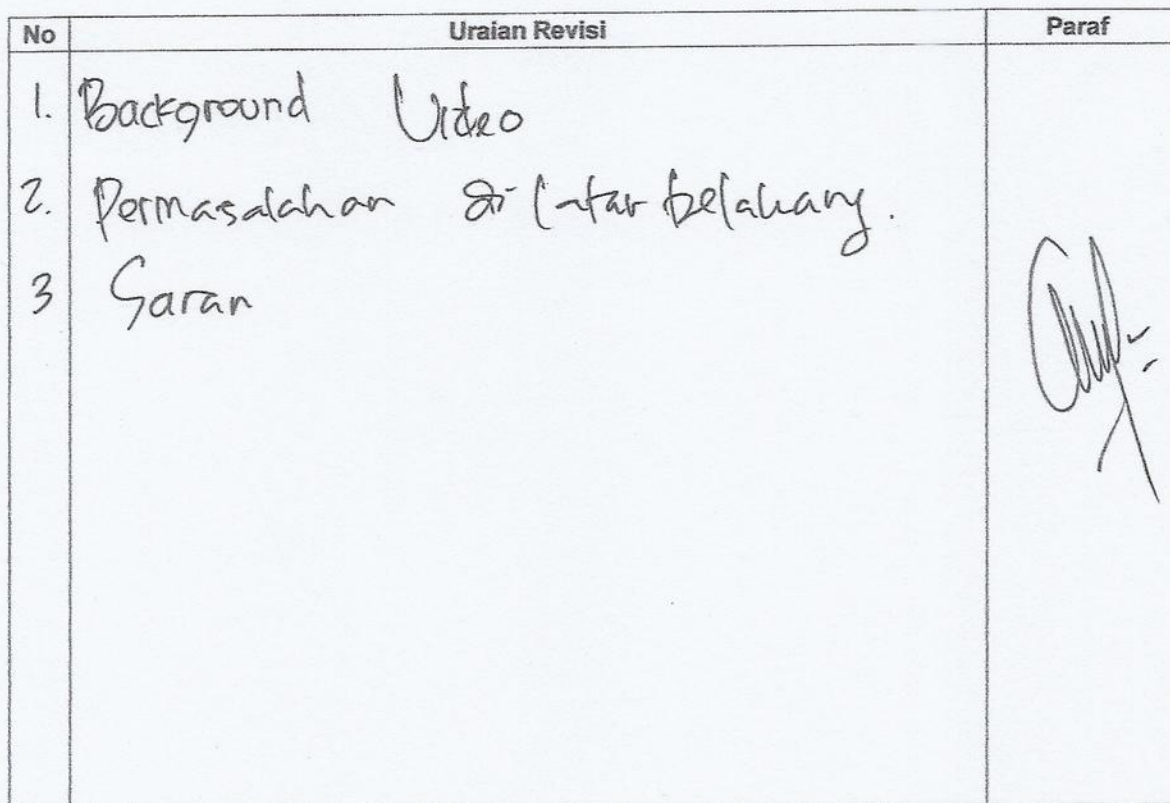 No Uraian Revisi Paraf
1. Background Video
2. Permasalahan di latar belakang.
3 Saran